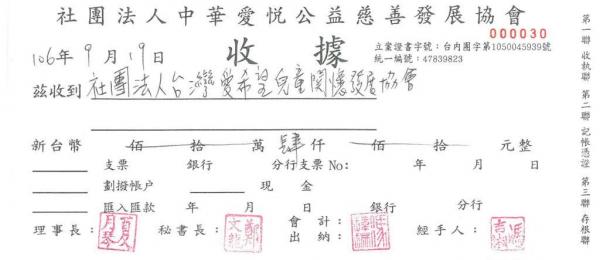 社團法人中華愛悅公益慈善發展協會
000030
106年9月19日 收據 立案證書字號：台內團字第1050045939號
統一編號：47839823
茲收到 社團法人台灣愛希望兒童關懷發展協會
新台幣 佰 拾 萬 肆 仟 佰 拾 元整
支票 銀行 分行支票No: 年 月 日
劃撥帳户 現金
匯入匯款 年 月 日 銀行 分行
理事長： 秘書長：鄭文龍 會計： 經手人：
出納：
第一聯 收執聯 第二聯 記帳憑證 第三聯 存根聯